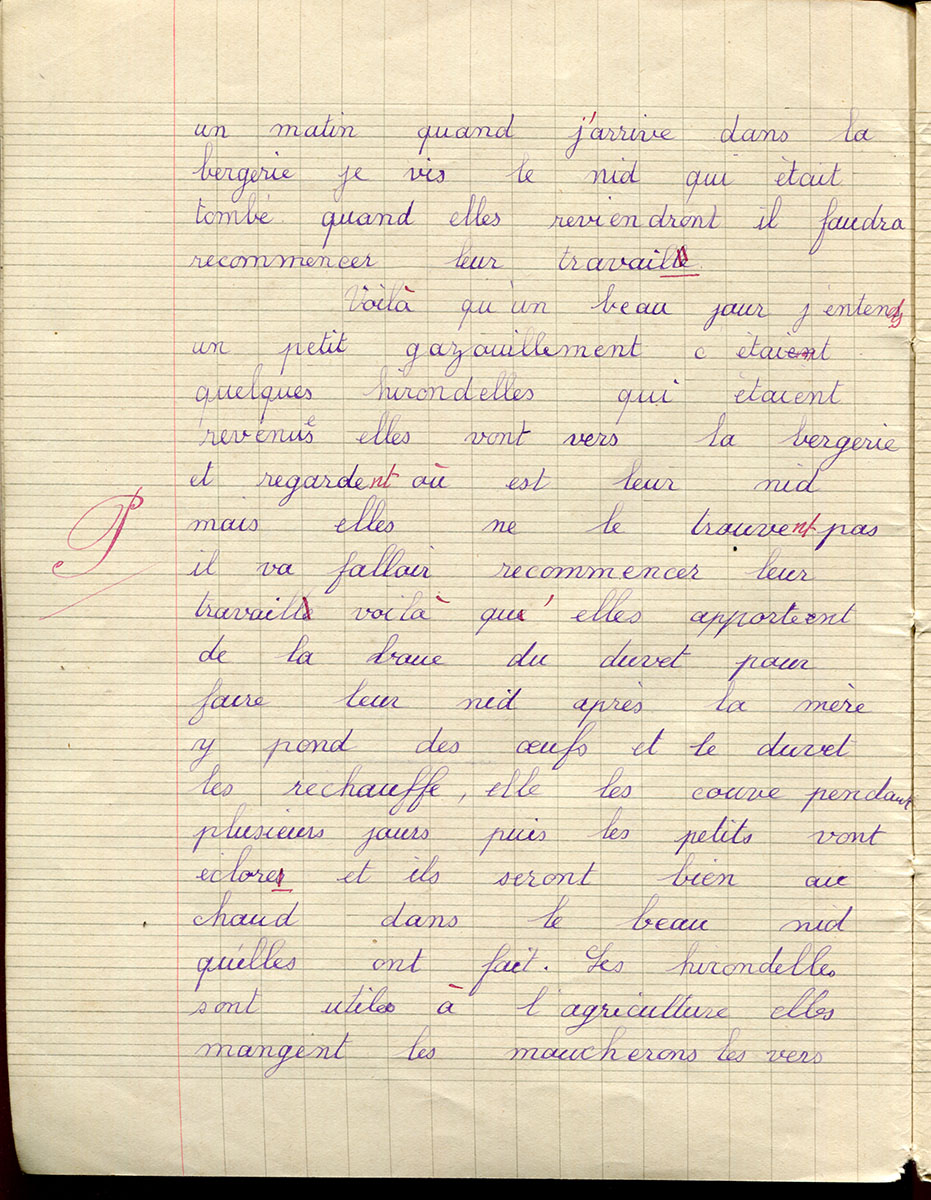 un matin quand j'arrive dans la
bergerie je vis le nid qui était
tombé quand elles reviendront il faudra
recommencer leur travaill
Voilà qu'un beau jour j'entends
un petit gazouillement c étaient
quelques hirondelles qui étaient
revenuse elles vont vers la bergerie
et regardent où est leur nid
mais elles ne le trouvent pas
il va falloir recommencer leur
travaill voilà qu' elles apportent
de la boue du duvet pour
faire leur nid après la mère
y pond des œufs et le duvet
les rechauffe, elle les couve pendant
plusieurs jours puis les petits vont
éclorer et ils seront bien au
chaud dans le beau nid
qu'elles ont fait. Les hirondelles
sont utiles à l'agriculture elles
mangent les moucherons les vers